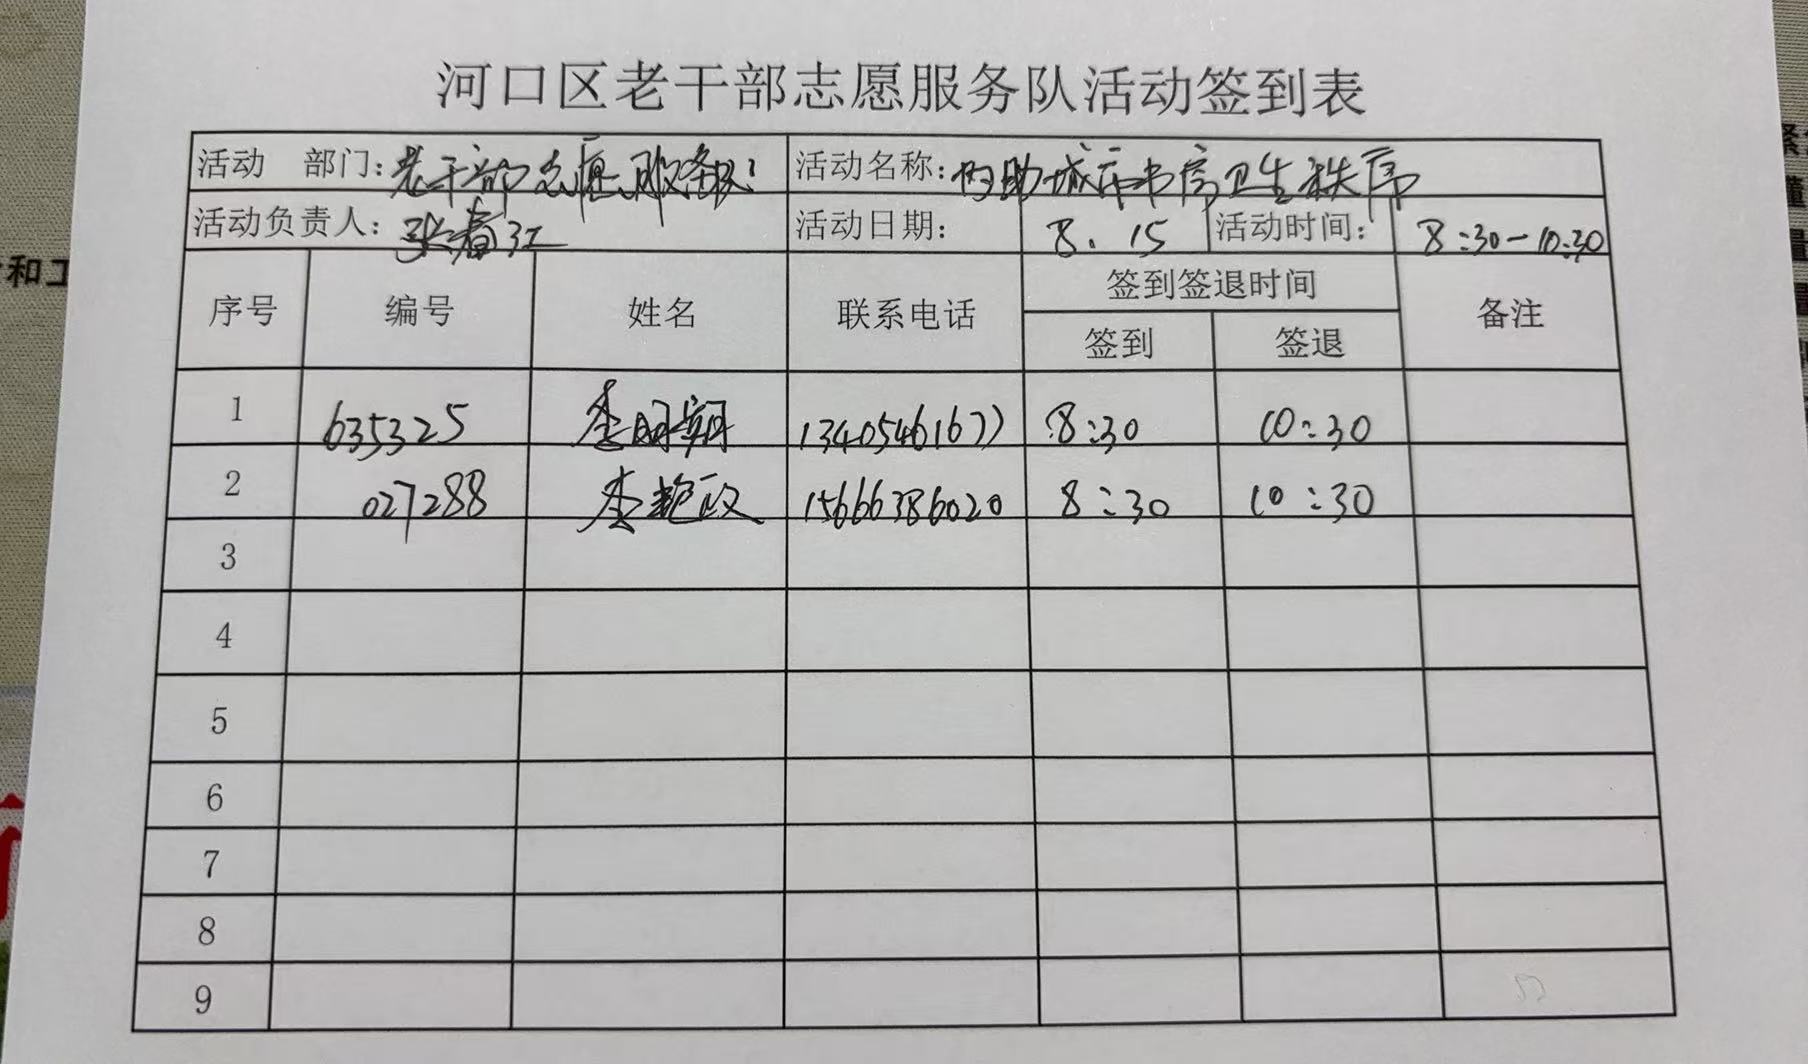 河口区老干部志愿服务队活动签到表
活动 部门：老干部志愿服务队 活动名称：协助城市书房卫生秩序
活动负责人：张春江 活动日期： 8.15 活动时间： 8:30-10:30
序号 编号 姓名 联系电话 签到签退时间 备注
签到 签退
1 635325 李明朝 13405461677 8:30 10:30
2 027288 李艳政 15666386020 8:30 10:30
3
4
5
6
7
8
9
和工